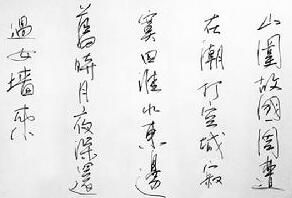 山圍故國周遭
在潮打空城寂
寞回淮水東邊
舊時月夜深還
過女墙來